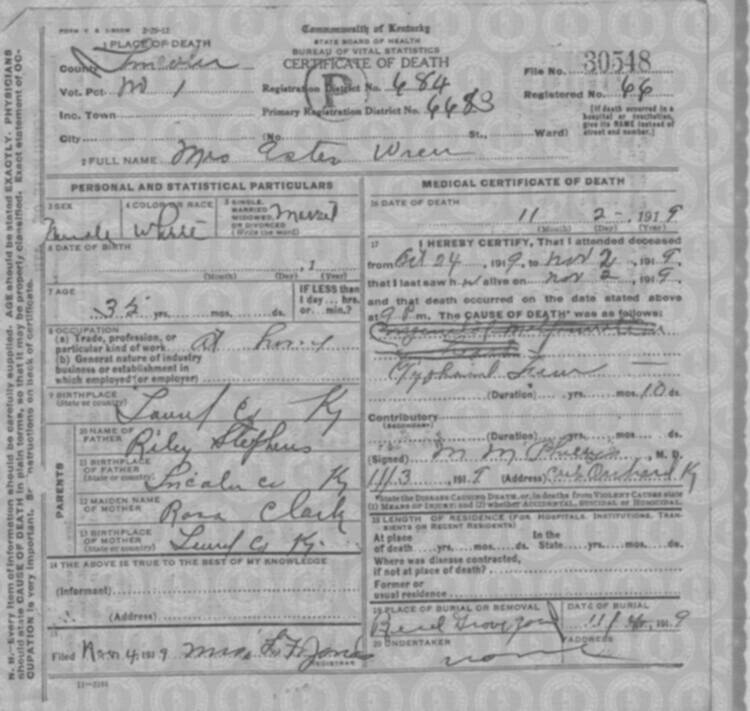 Commonwealth of Kentucky
STATE BOARD OF HEALTH
BUREAU OF VITAL STATISTICS
CERTIFICATE OF DEATH
1 PLACE OF DEATH
County
Vot. Pct. No 1
Inc. Town
City
Registration District No. 684
Primary Registration District No. 6683
(No. St., Ward)
File No. 30548
Registered No. 66
[If death occurred in a hospital or institution, give its NAME instead of street and number.]
2 FULL NAME Mrs Ester Wren
PERSONAL AND STATISTICAL PARTICULARS
3 SEX
Female
4 COLOR OR RACE
White
5 SINGLE, MARRIED, WIDOWED, OR DIVORCED
(Write the word)
6 DATE OF BIRTH
, 1
(Month) (Day) (Year)
7 AGE
35 yrs. mos. ds.
IF LESS than
1 day... hrs.
or... min.?
8 OCCUPATION
(a) Trade, profession, or
particular kind of work At home
(b) General nature of industry
business or establishment in
which employed (or employer)
9 BIRTHPLACE
(State or country) Laurel Co Ky
PARENTS
10 NAME OF FATHER Riley Stephens
11 BIRTHPLACE OF FATHER
(State or country) Lincoln co Ky
12 MAIDEN NAME OF MOTHER Rosa Clark
13 BIRTHPLACE OF MOTHER
(State or country) Laurel Co Ky.
14 THE ABOVE IS TRUE TO THE BEST OF MY KNOWLEDGE
(Informant)
(Address)
15
Filed Nov. 4, 1919
REGISTRAR
MEDICAL CERTIFICATE OF DEATH
16 DATE OF DEATH
11 2 , 1919
(Month) (Day) (Year)
17 I HEREBY CERTIFY, That I attended deceased
from Oct 24, 1919, to Nov 2, 1919,
that I last saw her alive on Nov 2, 1919,
and that death occurred on the date stated above
at 9 P m. The CAUSE OF DEATH* was as follows:
Typhoid Fever
(Duration) yrs. mos. 10 ds.
Contributory
(SECONDARY)
(Duration) yrs. mos. ds.
(Signed) M M Phillips, M. D.
11/3, 1919 (Address) Crab Orchard Ky
*State the DISEASE CAUSING DEATH, or, in deaths from VIOLENT CAUSES state
(1) MEANS OF INJURY; and (2) whether ACCIDENTAL, SUICIDAL or HOMICIDAL.
18 LENGTH OF RESIDENCE (FOR HOSPITALS, INSTITUTIONS, TRANSIENTS OR RECENT RESIDENTS)
At place In the
of death yrs. mos. ds. State yrs. mos. ds.
Where was disease contracted,
if not at place of death?
Former or
usual residence
19 PLACE OF BURIAL OR REMOVAL
DATE OF BURIAL
, 1919
20 UNDERTAKER
none
ADDRESS
N. B.—Every item of information should be carefully supplied. AGE should be stated EXACTLY. PHYSICIANS
should state CAUSE OF DEATH in plain terms, so that it may be properly classified. Exact statement of OC-
CUPATION is very important. See instructions on back of certificate.